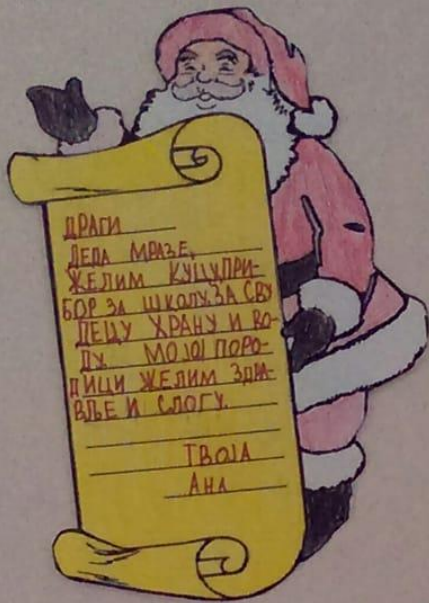 ДРАГИ
ДЕДА МРАЗЕ,
ЖЕЛИМ КУЦУ,ПРИ-
БОР ЗА ШКОЛУ.ЗА СВУ
ДЕЦУ ХРАНУ И ВО-
ДУ. МОЈОЈ ПОРО-
ДИЦИ ЖЕЛИМ ЗДРА-
ВЉЕ И СЛОГУ.
ТВОЈА
АНА